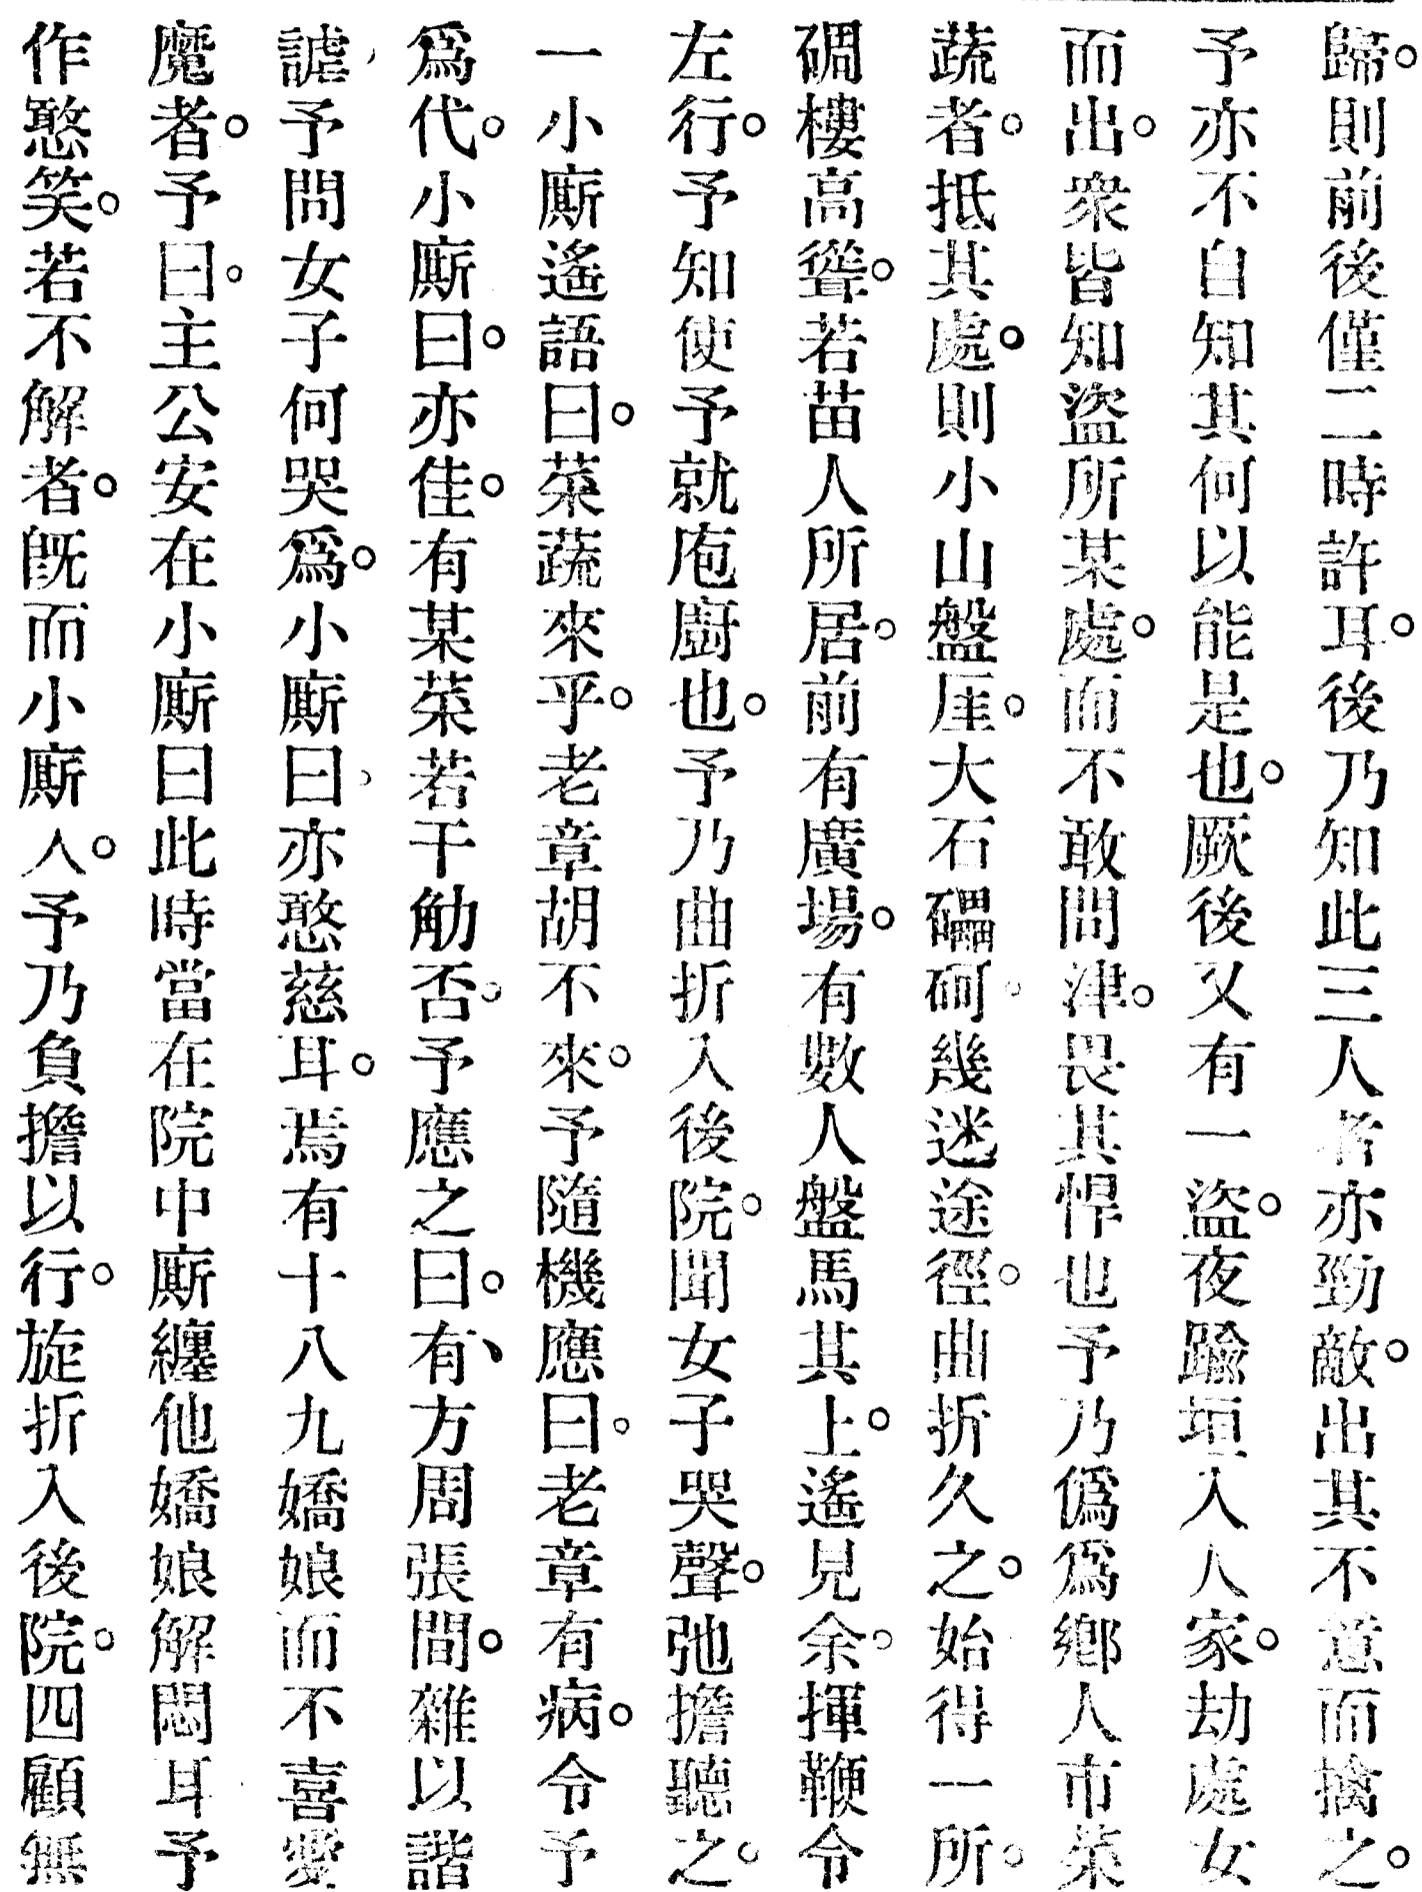 歸。則前後僅二時許耳。後乃知此三人者亦勁敵。出其不意而擒之。
予亦不自知其何以能是也。厥後又有一盜。夜踰垣入人家。劫處女
而出。衆皆知盜所某處。而不敢問津。畏其悍也予乃僞爲鄉人市菜
蔬者。抵其處。則小山盤厓。大石礧砢。幾迷途徑。曲折久之。始得一所。
碉樓高聳。若苗人所居。前有廣場。有數人盤馬其上。遙見余。揮鞭令
左行。予知使予就庖廚也。予乃曲折入後院。聞女子哭聲。弛擔聽之。
一小廝遙語曰。菜蔬來乎。老章胡不來。予隨機應曰。老章有病。令予
爲代。小廝曰。亦佳。有某菜若干觔否。予應之曰。有、方周張間。雜以諧
謔，予問女子何哭爲。小廝曰，亦憨慈耳。焉有十八九嬌娘而不喜愛
魔者。予曰。主公安在小廝曰此時當在院中廝纏他嬌娘解悶耳予
作憨笑。若不解者。旣而小廝入。予乃負擔以行。旋折入後院。四顧無